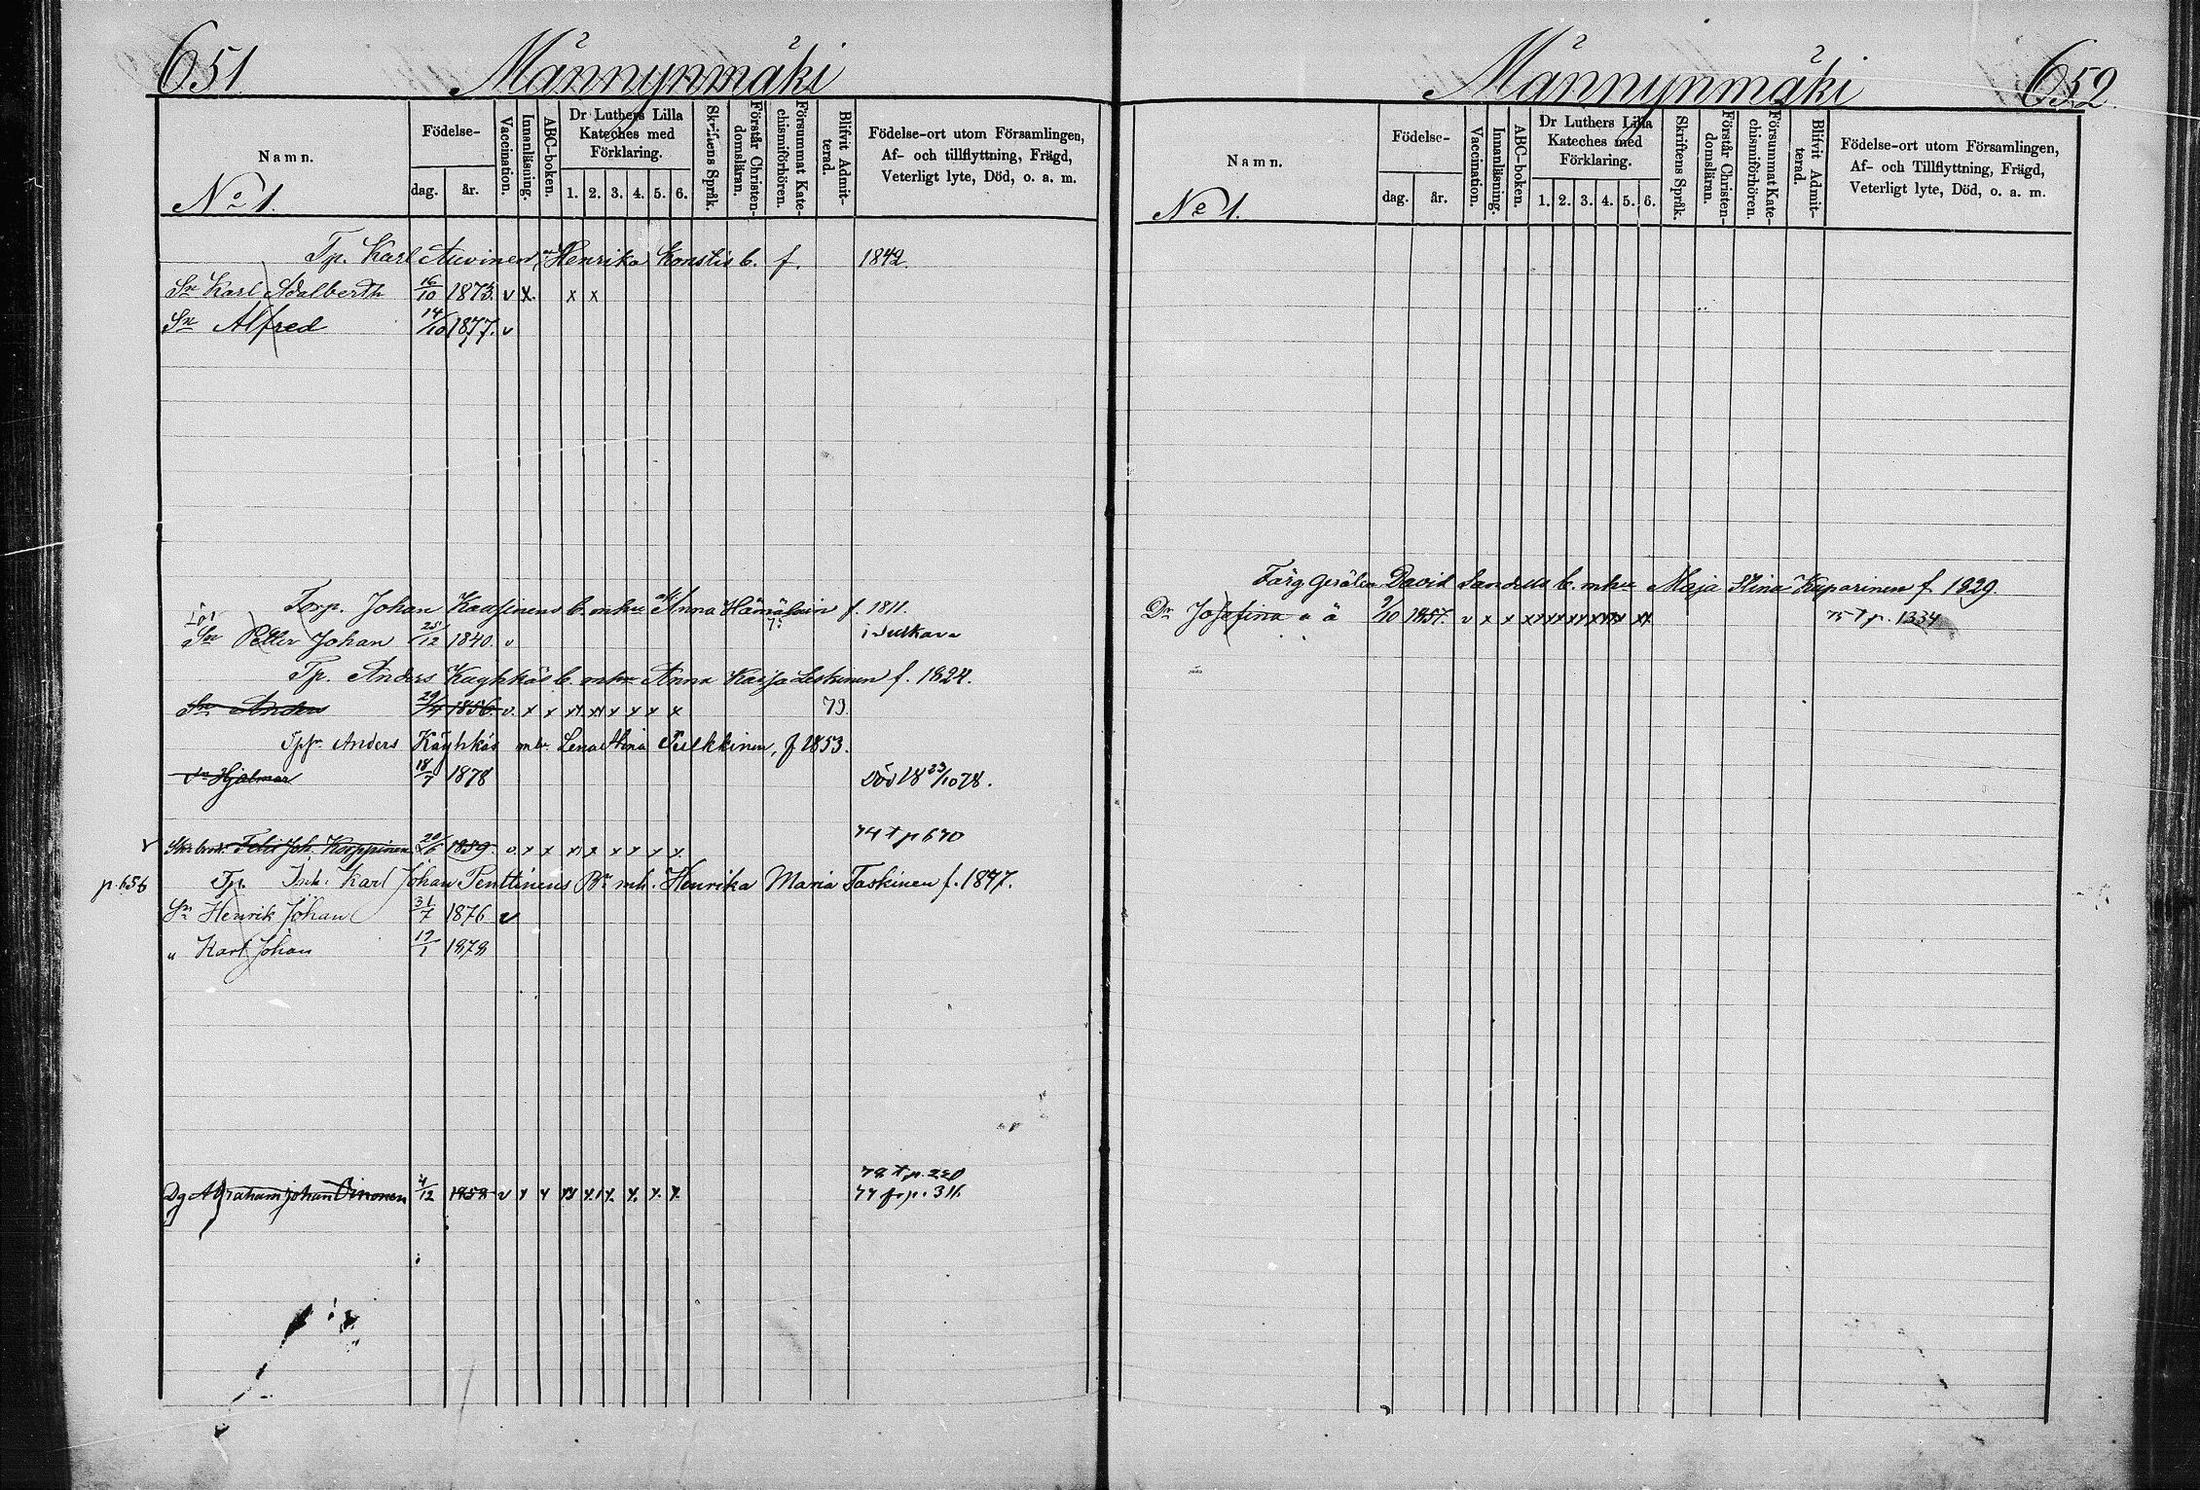 651
Männynmäki
Namn.
Födelse-
dag.
år.
Vaccination.
Innanläsning.
ABC-boken.
Dr Luthers Lilla
Kateches med
Förklaring.
1. 2. 3. 4. 5. 6.
Skriftens Språk.
Förstår Christen-
domsläran.
Försummat Kate-
chismiförhören.
Blifvit Admit-
terad.
Födelse-ort utom Församlingen,
Af- och tillflyttning, Frägd,
Veterligt lyte, Död, o. a. m.
No 1.
Tp. Karl Auvinen Henrika Konstis b. f. 1842.
Sn Karl Adalberth 16/10 1873. v x x x
Sn Alfred 14/10 1877. v
Torp. Johan b. mhu Anna Hämäläin f. 1811.
Sn Petter Johan 25/12 1840. v i Sulkava
Tp. Anders Käyhkäs b. mhu Anna Kaisa Leskinen f. 1824.
Sn Anders 29/4 1856 v. x x xx xx x x x x 73.
Anders Käyhkäs mh Lena Stina Pulkkinen, f 1853.
Sn Hjalmar 18/7 1878 Död 18 23/10 78.
74 t p 670
v Joh. Korppinen 20/6 1859. v. x x x x x x x x
p. 656 Tp. Karl Johan Penttinens mh. Henrika Maria Taskinen f. 1847.
Sn Henrik Johan 31/7 1876 v
" Karl Johan 19/1 1878
78 t p. 220
Dg Abraham Johan Vinonen 4/12 1858 v x x xx x x x x x 77 fr p. 311
Männynmäki
652
Namn.
Födelse-
dag.
år.
Vaccination.
Innanläsning.
ABC-boken.
Dr Luthers Lilla
Kateches med
Förklaring.
1. 2. 3. 4. 5. 6.
Skriftens Språk.
Förstår Christen-
domsläran.
Försummat Kate-
chismiförhören.
Blifvit Admit-
terad.
Födelse-ort utom Församlingen,
Af- och Tillflyttning, Frägd,
Veterligt lyte, Död, o. a. m.
No 1.
Färg. gesälen David b. mhu Maja Stina Kuparinen f. 1829.
Dr Josefina a ä 9/10 1857. v x x xx xx xx xx xx 75 t p. 1334